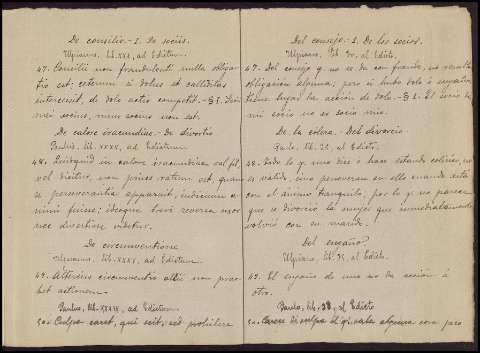 De consilio.- I. De sociis.
Ulpianus, lib. XXX, ad Edictum.
47. Consilii non fraudulenti nulla obliga-
tio est; ceterum si dolus et calliditas
intercessit, de dolo actio competit.- § I. Socii
mei socius, meus socius non est.
De calore iracundiae.- De divortio
Paulus, lib. XXXV, ad Edictum.
48. Quidquid in calore iracundiae vel fit,
vel dicitur, non prius ratum est, quam
si perseverantia apparuit, iudicium a-
nimi fuisse; ideoque brevi reversa uxor
nec divortisse videtur.
De circumventione
Ulpianus, lib. XXXV, ad Edictum.
49. Alterius circumventio alii non prae-
bet actionem.
Paulus, lib. ad Edictum.
50. Culpa caret, qui scit, sed prohibere
Del consejo.- I. De los socios.
Ulpiano, lib. 30, al Edicto.
47. Del consejo q. no se da con fraude, no resulta
obligación alguna; pero si hubo dolo ó engaño,
tiene lugar la acción de dolo.- § I. El socio de
mi socio no es socio mio.
De la cólera. Del divorcio.
Paulo, lib. 35, al Edicto.
48. Todo lo q. uno dice ó hace estando colérico, no
es valido, sino perseveran en ello cuando está
con el ánimo tranquilo; por lo q. no parece
que se divorció la mujer que inmediatamente
volvió con su marido.
Del engaño.
Ulpiano, lib. 35, al Edicto.
49. El engaño de uno no da acción á
otro.
Paulo, lib. 38, al Edicto
50. Carece de culpa el q. sabe alguna cosa pero